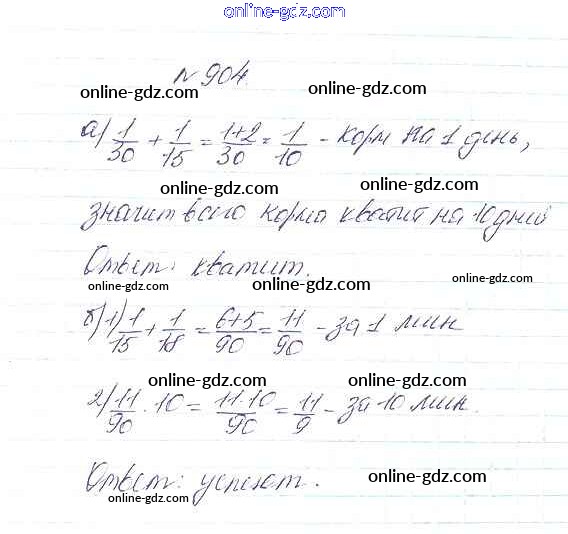 online-gdz.com
№904
online-gdz.com
online-gdz.com
а) 1/30 + 1/15 = 1+2/30 = 1/10 - корм на 1 день,
online-gdz.com
online-gdz.com
значит всего корма хватит на 10 дней
Ответ: хватит.
online-gdz.com
online-gdz.com
б) 1) 1/15 + 1/18 = 6+5/90 = 11/90 - за 1 мин
online-gdz.com
online-gdz.com
2) 11/90 · 10 = 11·10/90 = 11/9 - за 10 мин.
online-gdz.com
online-gdz.com
Ответ: успеют.
online-gdz.com